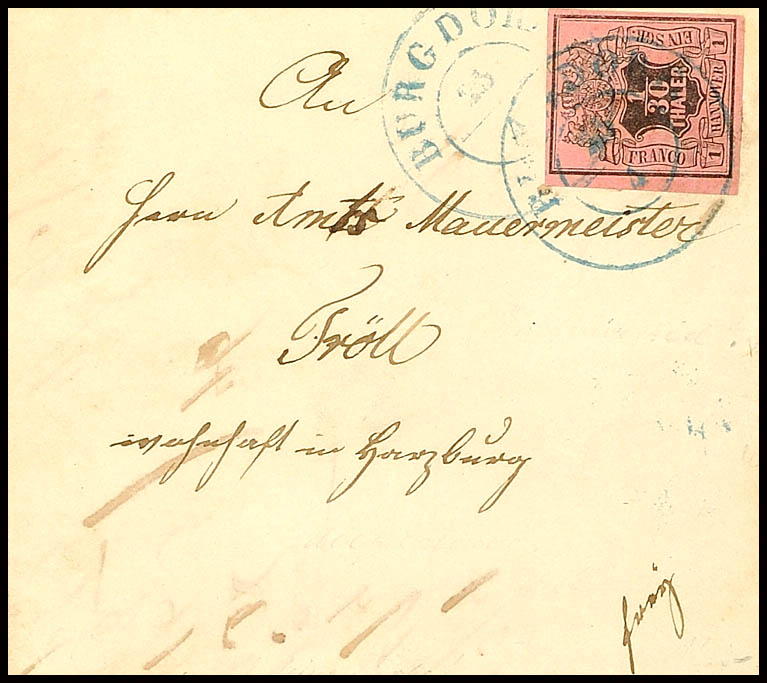 An
BURGDOR
EIN SGR
1
1
30
THALER
HANNOVER
FRANCO
1
Herrn Amts Mauermeister
Fröll
wohnhaft in Harzburg